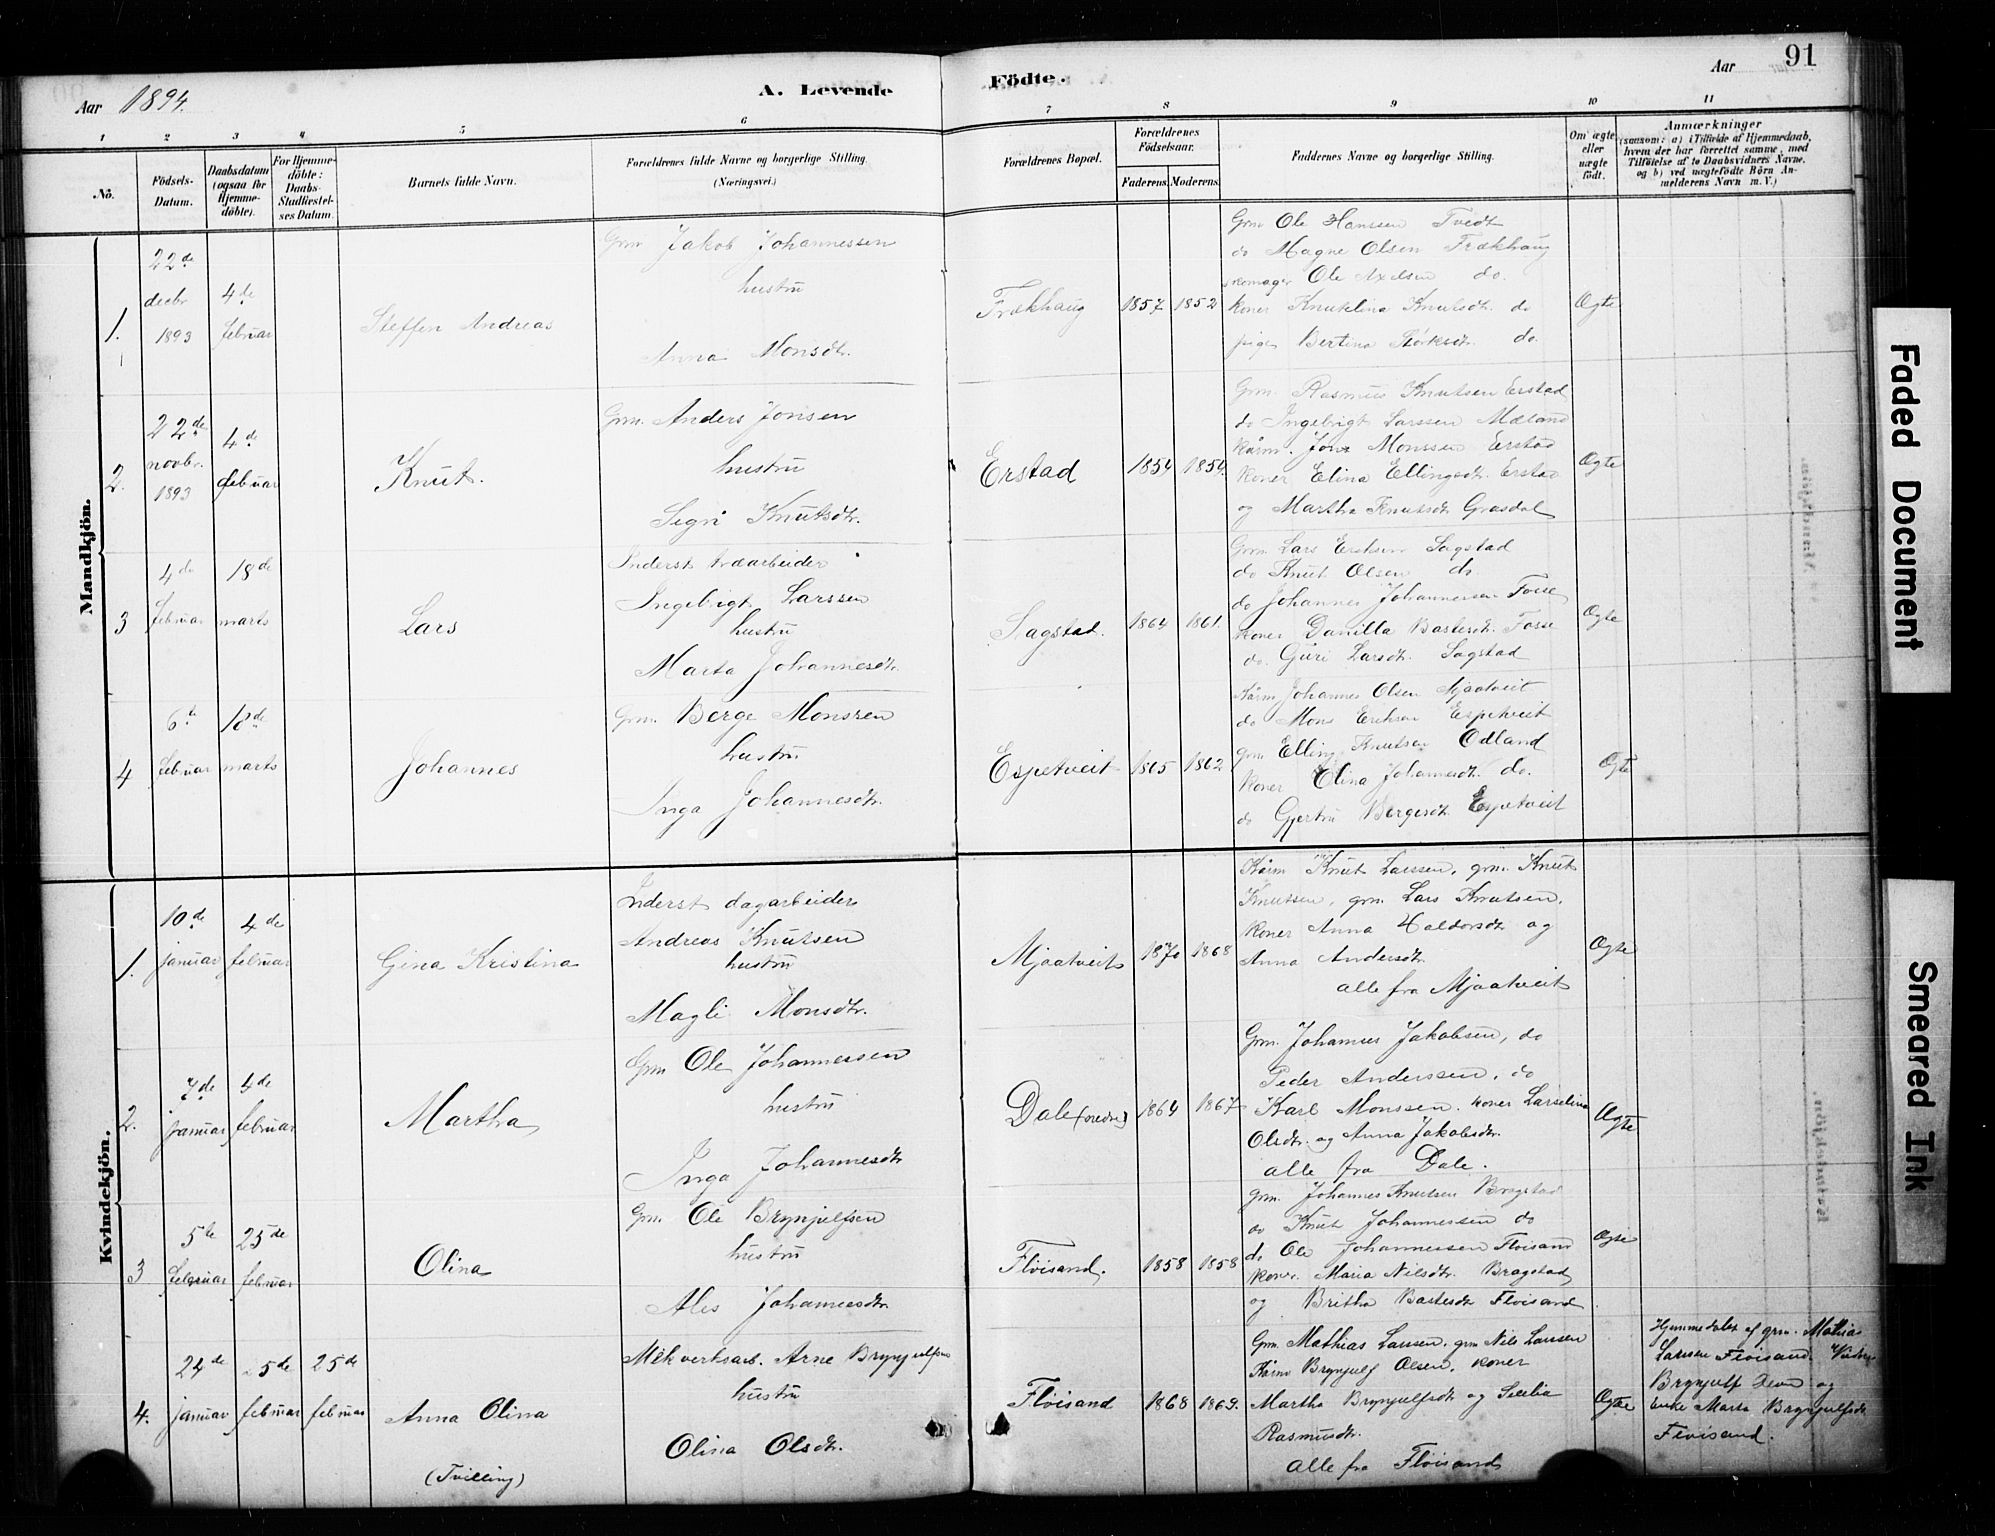 91
Aar 1894.
A. Levende Födte.
Aar
1 2 3 4 5 6 7 8 9 10 11
No.
Födsels-
Datum.
Daabsdatum
(ogsaa för
Hjemme-
döbte).
For Hjemme-
döbte:
Daabs-
Stadfæstel-
ses Datum.
Barnets fulde Navn.
Forældrenes fulde Navne og borgerlige Stilling.
(Næringsvei.)
Forældrenes Bopæl.
Forældrenes
Födselsaar.
Faderens. Moderens.
Faddernes Navne og borgerlige Stilling.
Om ægte
eller
uægte
födt.
Anmærkninger
(saasom: a) i Tilfælde af Hjemmedaab,
hvem der har forrettet samme, med
Tilföielse af to Daabsvidners Navne,
og b) ved uægtefödte Börn An-
melderens Navn m. V.)
Mandkjön.
1.
22de
decbr
1893
4de
februar
Steffen Andreas
Grm Jakob Johannessen
hustru
Anna Monsdtr.
Frækhaug
1857 1852
Grm Ole Hanssen Tvedt
do Magne Olsen Frækhaug
skomager Ole Axelsen do.
koner Knutelina Knutsdtr. do
pige Bertina Størksdtr. do.
Ægte
2.
22de
novbr.
1893
4de
februar
Knut.
Grm. Anders Jonsen
hustru
Segri Knutsdtr.
Erstad
1854 1854.
Grm. Rasmus Knutsen Erstad
do Ingebrigt Larssen Mæland
kårm. Jon Monssen Erstad
koner Elina Ellingsdtr. Erstad
og Martha Knutsdtr Grasdal
Ægte
3
4de
februar
18de
marts
Lars
Inderst træarbeider
Ingebrigt Larssen
hustru
Marta Johannesdtr.
Sagstad.
1864 1861.
Grm. Lars Eriksen Sagstad
do Knut Olsen do
do Johannes Johannessen Fosse
koner Danilla Bastesdtr. Fosse
do. Guri Larsdtr. Sagstad
Ægte
4
6te
februar
18de
marts
Johannes
Grm. Berge Monssen
hustru
Inga Johannesdtr.
Espetveit
1865 1862
Kårm Johannes Olsen Mjaatveit
do Mons Eriksen Espetveit
grm Elling Knutsen Odland
koner Elina Johannesdtr. do.
do Gjertru Bergesdtr. Espetveit
Ægte
Kvindekjön.
1.
10de
januar
4de
februar
Gina Kristina
Inderst dagarbeider
Andreas Knutsen
hustru
Magli Monsdtr.
Mjaatveit
1870 1868
Kårm Knut Larssen, grm. Knut
Knutsen, grm. Lars Knutsen,
koner Anna Haldorsdtr og
Anna Andersdtr
alle fra Mjaatveit
Ægte
2.
7de
januar
4de
februar
Martha
Grm Ole Johannessen
hustru
Inga Johannesdtr
Dale (nedre)
1864 1867
Grm. Johannes Jakobsen, do
Peder Anderssen, do
Karl Monssen. koner Larselina
Olsdtr. og Anna Jakobsdtr.
alle fra Dale.
Ægte
3
5te
februar
25de
februar
Olina
Grm. Ole Brynjulfsen
hustru
Ales Johannesdtr.
Fløisand.
1858 1858
grm. Johannes Knutsen Bragstad
do Knut Johannessen do
do Ole Johannessen Fløisand
koner. Maria Nilsdtr. Bragstad
og Britha Bastesdtr Fløisand
Ægte
4.
24de
januar
5de
februar
25de
februar
Anna Olina
(Tvilling)
Mek verksarb. Arne Brynjulfsen
hustru
Olina Olsdtr.
Fløisand
1868 1869.
Grm. Mathias Larssen, grm Nils Larssen
Kårm Brynjulf Olsen, koner
Martha Brynjulfsdtr og
Rasmusdtr.
alle fra Fløisand
Ægte
Hjemmedøbt af grm. Mathias
Larssen Fløisand.
Brynjulf og
enke Marta Brynjulfsdtr
Fløisand.
Faded Document
Smeared Ink